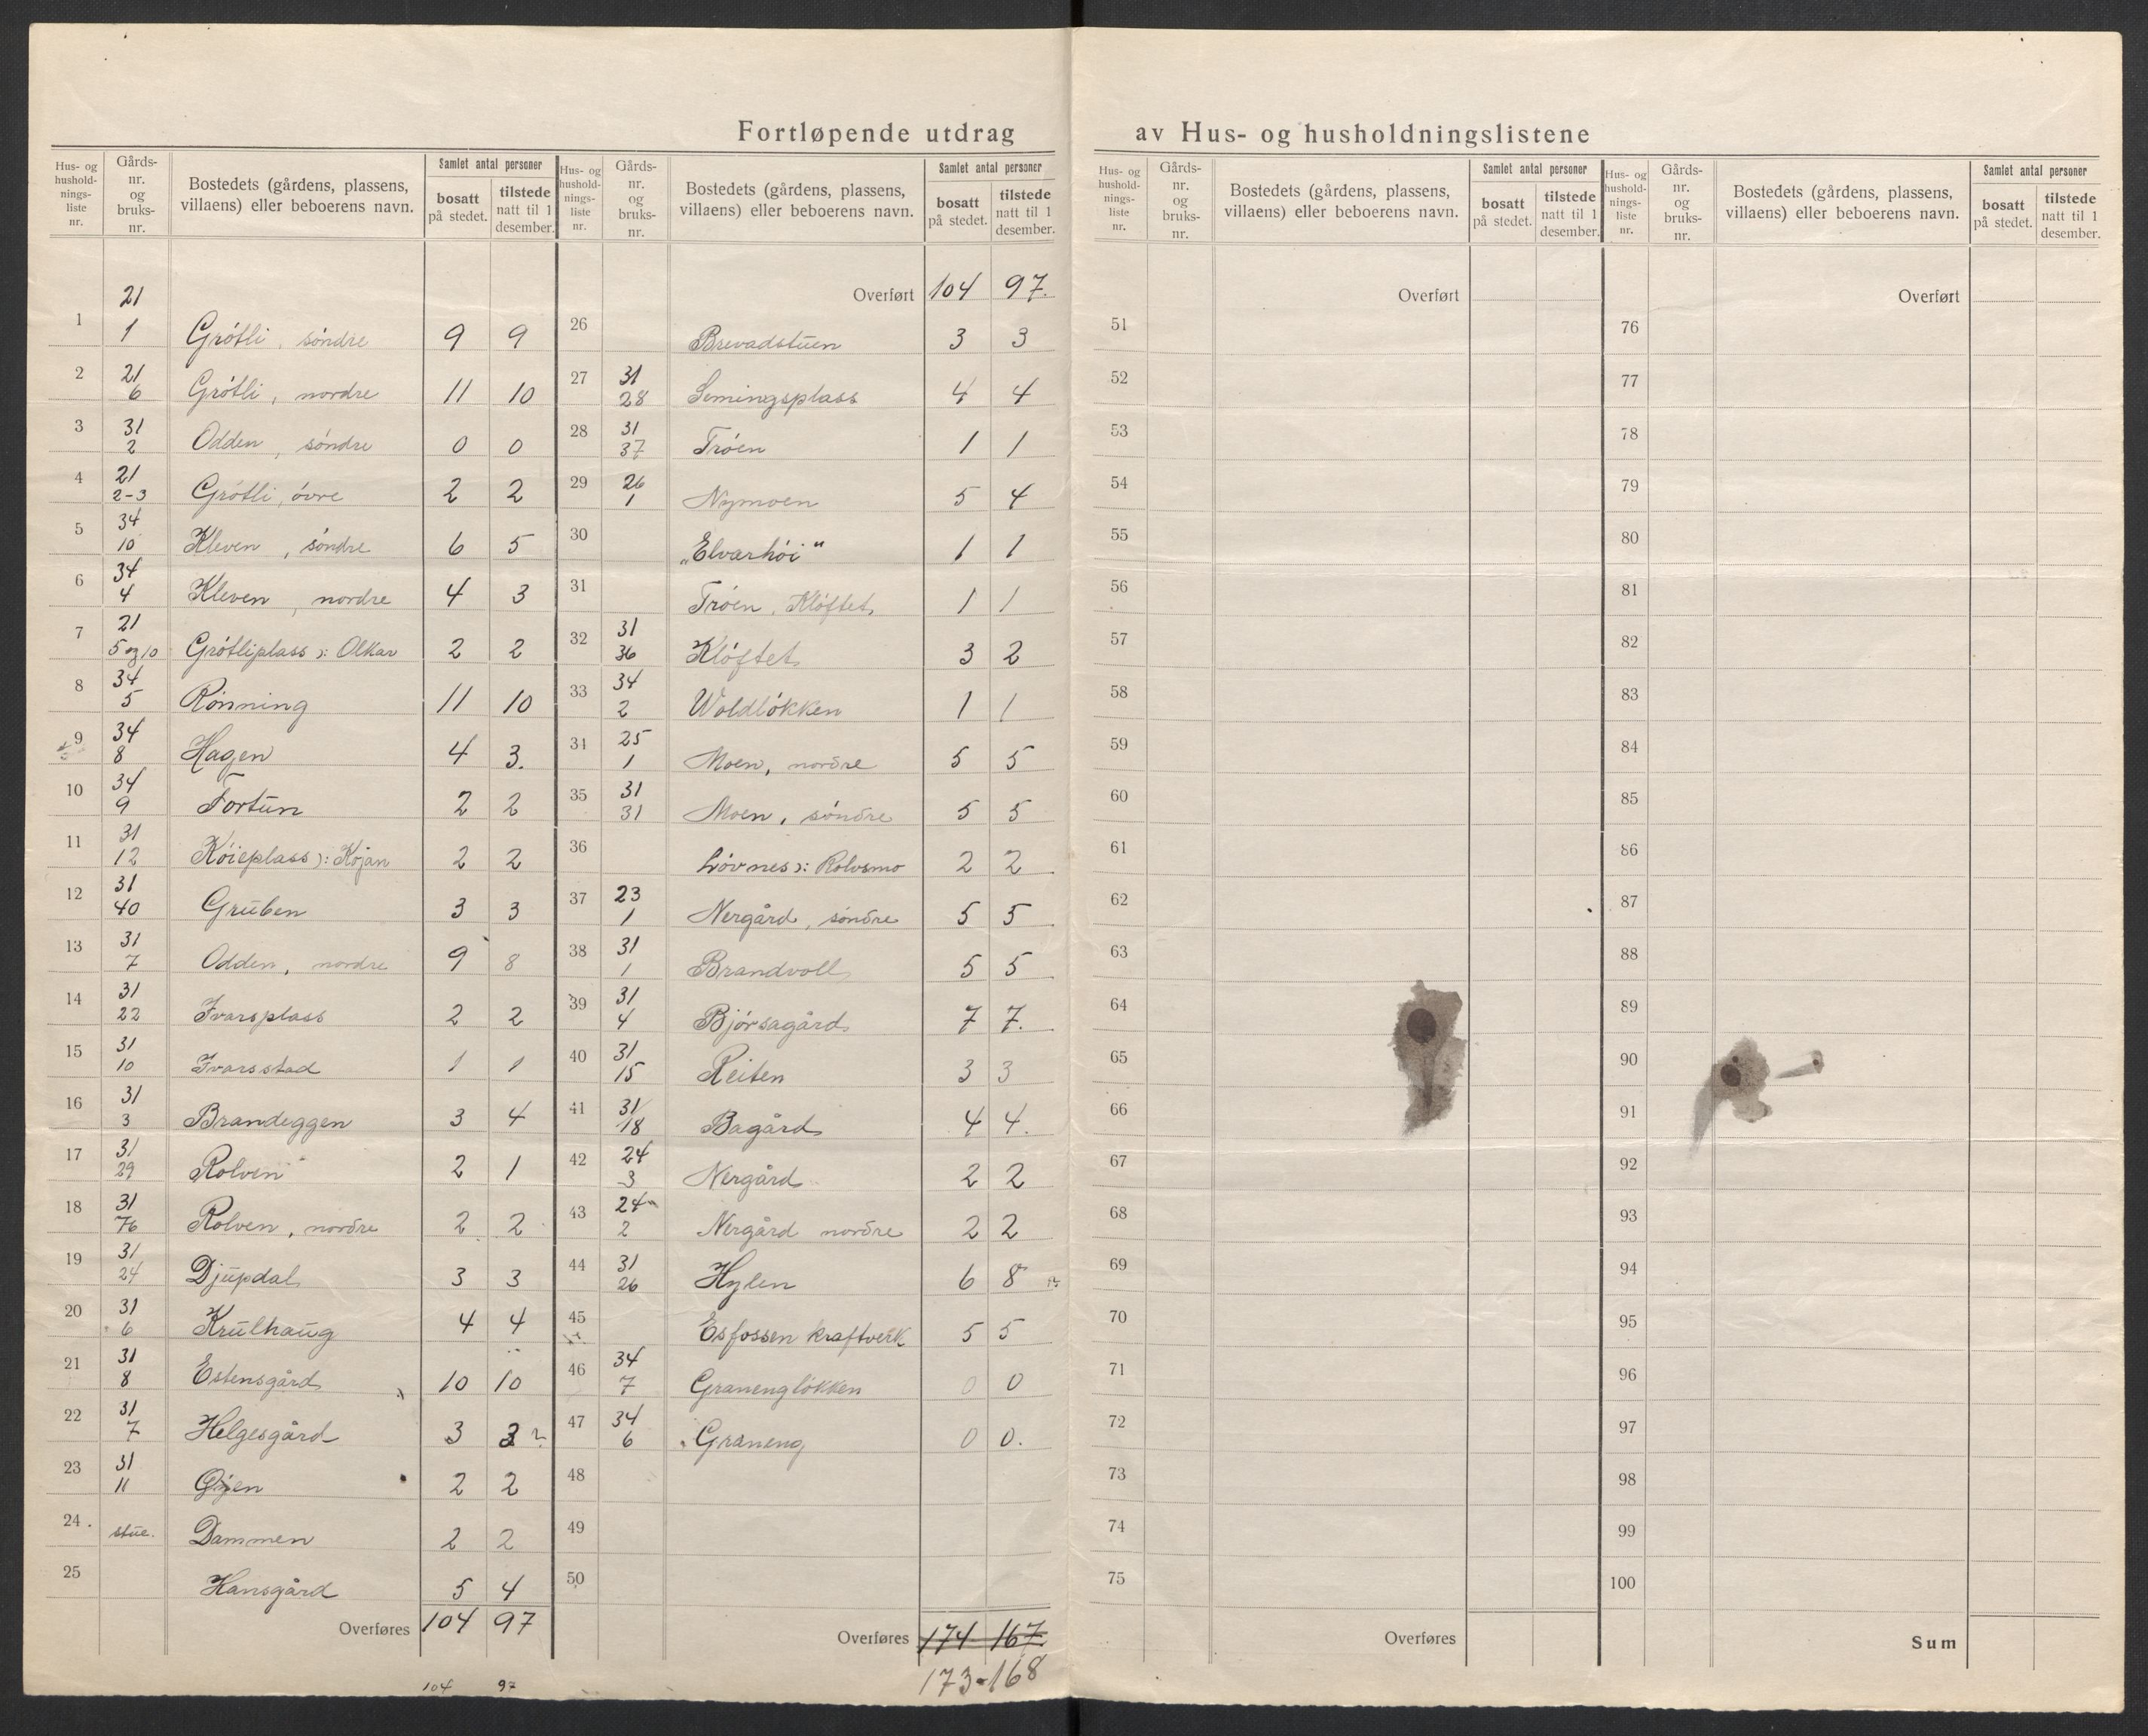 Fortløpende utdrag av Hus- og husholdningslistene
Hus- og husholdnings-liste nr. | Gårds-nr. og bruks-nr. | Bostedets (gårdens, plassens, villaens) eller beboerens navn. | Samlet antal personer bosatt på stedet. | tilstede natt til 1 desember.
1 | 21 1 | Grötli, söndre | 9 | 9
2 | 21 6 | Grötli, nordre | 11 | 10
3 | 31 2 | Odden, söndre | 0 | 0
4 | 21 2-3 | Grötli, övre | 2 | 2
5 | 34 10 | Kleven, söndre | 6 | 5
6 | 34 4 | Kleven, nordre | 4 | 3
7 | 21 5 og 10 | Grötliplass ɔ: Olkar | 2 | 2
8 | 34 5 | Rönning | 11 | 10
9 | 34 8 | Hagen | 4 | 3.
10 | 34 9 | Fortun | 2 | 2
11 | 31 12 | Köieplass ɔ: Köjan | 2 | 2
12 | 31 40 | Gruben | 3 | 3
13 | 31 7 | Odden, nordre | 9 | 8
14 | 31 22 | Ivarsplass | 2 | 2
15 | 31 10 | Ivarsstad | 1 | 1
16 | 31 3 | Brandeggen | 3 | 4
17 | 31 29 | Rolven | 2 | 1
18 | 31 76 | Rolven, nordre | 2 | 2
19 | 31 24 | Djupdal | 3 | 3
20 | 31 6 | Krulhaug | 4 | 4
21 | 31 8 | Estensgård | 10 | 10
22 | 31 7 | Helgesgård | 3 | 3
23 | 31 11 | Öien | 2 | 2
24. | stue. | Dammen | 2 | 2
25 | Hansgård | 5 | 4
Overføres | 104 | 97
104 97
Hus- og husholdnings-liste nr. | Gårds-nr. og bruks-nr. | Bostedets (gårdens, plassens, villaens) eller beboerens navn. | Samlet antal personer bosatt på stedet. | tilstede natt til 1 desember.
Overført | 104 | 97.
26 | Brevadstuen | 3 | 3
27 | 31 28 | Semingsplass | 4 | 4
28 | 31 37 | Tröen | 1 | 1
29 | 26 1 | Nymoen | 5 | 4
30 | „Elvarhöi" | 1 | 1
31 | Tröen, Klöftet | 1 | 1
32 | 31 36 | Klöftet | 3 | 2
33 | 34 2 | Woldlökken | 1 | 1
31 | 25 1 | Moen, nordre | 5 | 5
35 | 31 31 | Moen, söndre | 5 | 5
36 | Lövnes ɔ: Rolvsmo | 2 | 2
37 | 23 1 | Nergård, söndre | 5 | 5
38 | 31 1 | Brandvoll | 5 | 5
39 | 31 4 | Björsagård | 7 | 7.
40 | 31 15 | Reiten | 3 | 3
41 | 31 18 | Bagård | 4 | 4.
42 | 24 3 | Nergård | 2 | 2
43 | 24 2 | Nergård nordre | 2 | 2
44 | 31 26 | Hylen | 6 | 8
45 | Esfossen kraftverk | 5 | 5
46 | 34 7 | Graneng lökken | 0 | 0
47 | 34 6 | Graneng | 0 | 0.
48
49
50
Overføres | 174 | 167.
173-168
Hus- og husholdnings-liste nr. | Gårds-nr. og bruks-nr. | Bostedets (gårdens, plassens, villaens) eller beboerens navn. | Samlet antal personer bosatt på stedet. | tilstede natt til 1 desember.
Overført
51
52
53
54
55
56
57
58
59
60
61
62
63
64
65
66
67
68
69
70
71
72
73
74
75
Overføres
Hus- og husholdnings-liste nr. | Gårds-nr. og bruks-nr. | Bostedets (gårdens, plassens, villaens) eller beboerens navn. | Samlet antal personer bosatt på stedet. | tilstede natt til 1 desember.
Overført
76
77
78
79
80
81
82
83
84
85
86
87
88
89
90
91
92
93
94
95
96
97
98
99
100
Sum